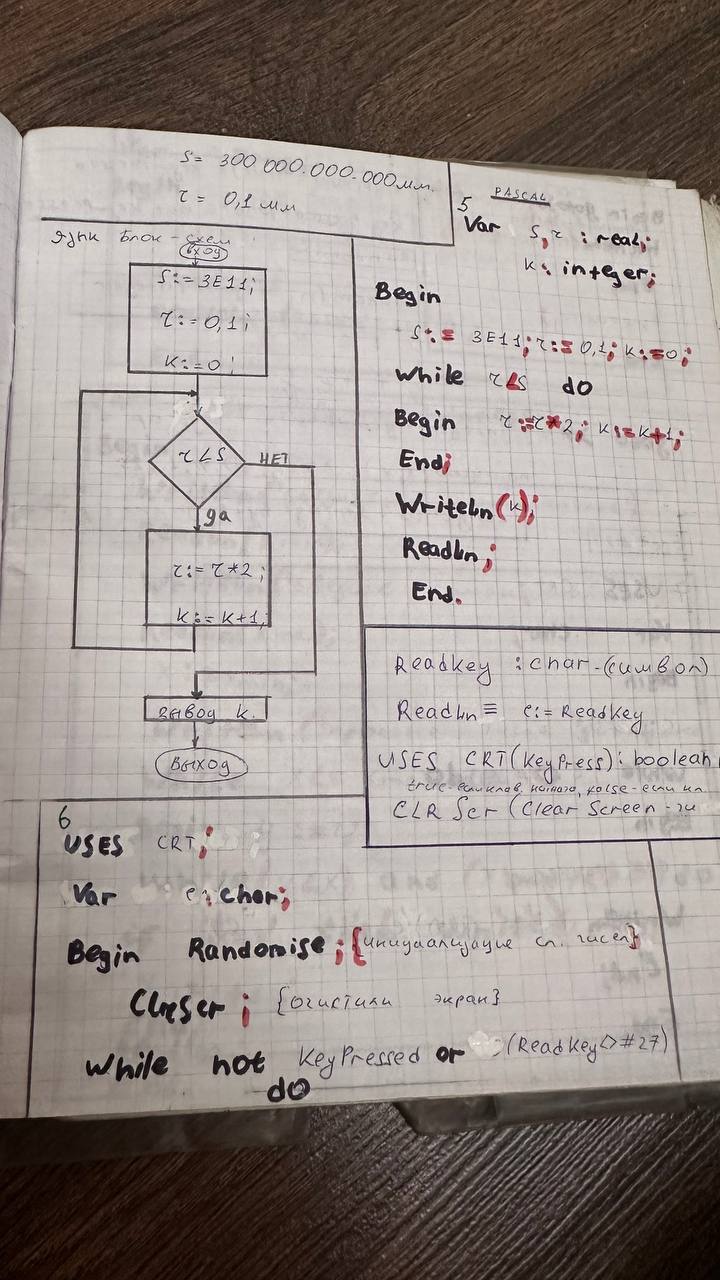 S= 300 000.000.000мм.
τ = 0,1 мм
Язык Блок-схем
вход
S:= 3E11;
τ:= 0,1;
k:=0;
τ<S
НЕТ
да
τ:= τ*2;
k:= k+1;
вывод k.
Выход
5
PASCAL
Var S,τ : real;
k: integer;
Begin
S:= 3E11; τ:= 0,1; k:=0;
While τ<S do
Begin τ:=τ*2; k:=k+1;
End;
WriteLn(k);
ReadLn;
End.
ReadKey : char - (символ)
ReadLn ≡ c:= ReadKey
USES CRT(KeyPress): boolean
true-если клав. нажата, false-если кл
CLR Scr (Clear Screen -
6
USES CRT;
Var c: char;
Begin Randomise; {инициализация сл. чисел}
ClrScr; {очистили экран}
While not KeyPressed or (ReadKey<>#27)
do